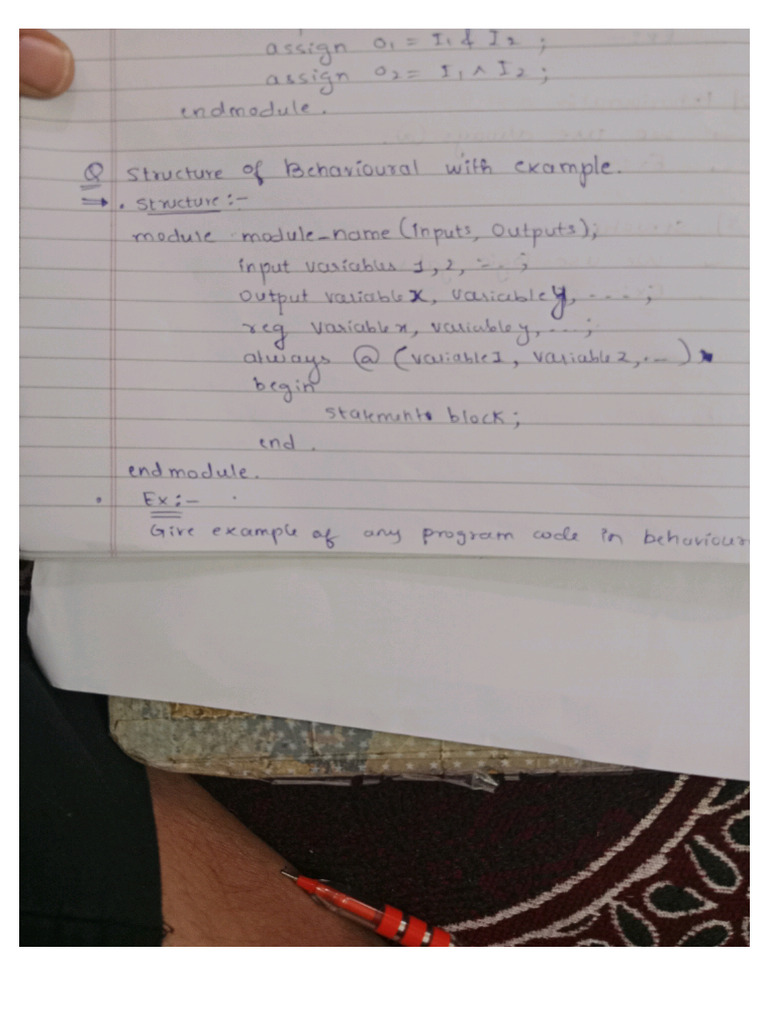 assign O₁ = I₁ & I₂ ;
assign O₂ = I₁ ∧ I₂ ;
endmodule.
Q Structure of Behavioural with example.
→ . Structure :-
module module-name (Inputs, Outputs);
input variables 1, 2, -- ;
Output variable X, variable y, .... ;
reg variable x, variable y, ... ;
always @ (variable 1, variable 2, .. )
begin
statements block ;
end .
endmodule.
• Ex :-
Give example of any program code in behaviour